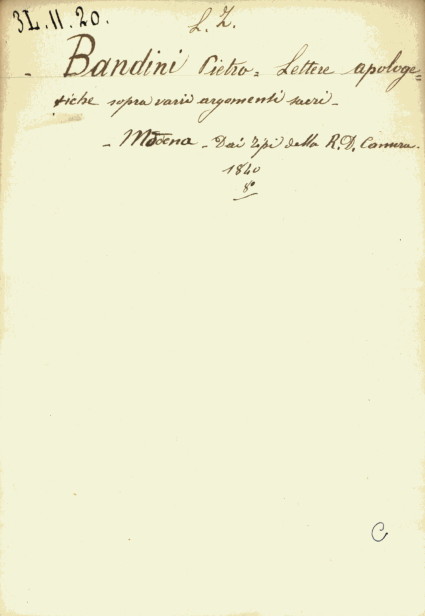 3L.11.20.
L. Z.
- Bandini Pietro = Lettere apologe=
tiche sopra varii argomenti sacri -
- Modena - Dai Tipi della R. D. Camera.
1840
8°
C